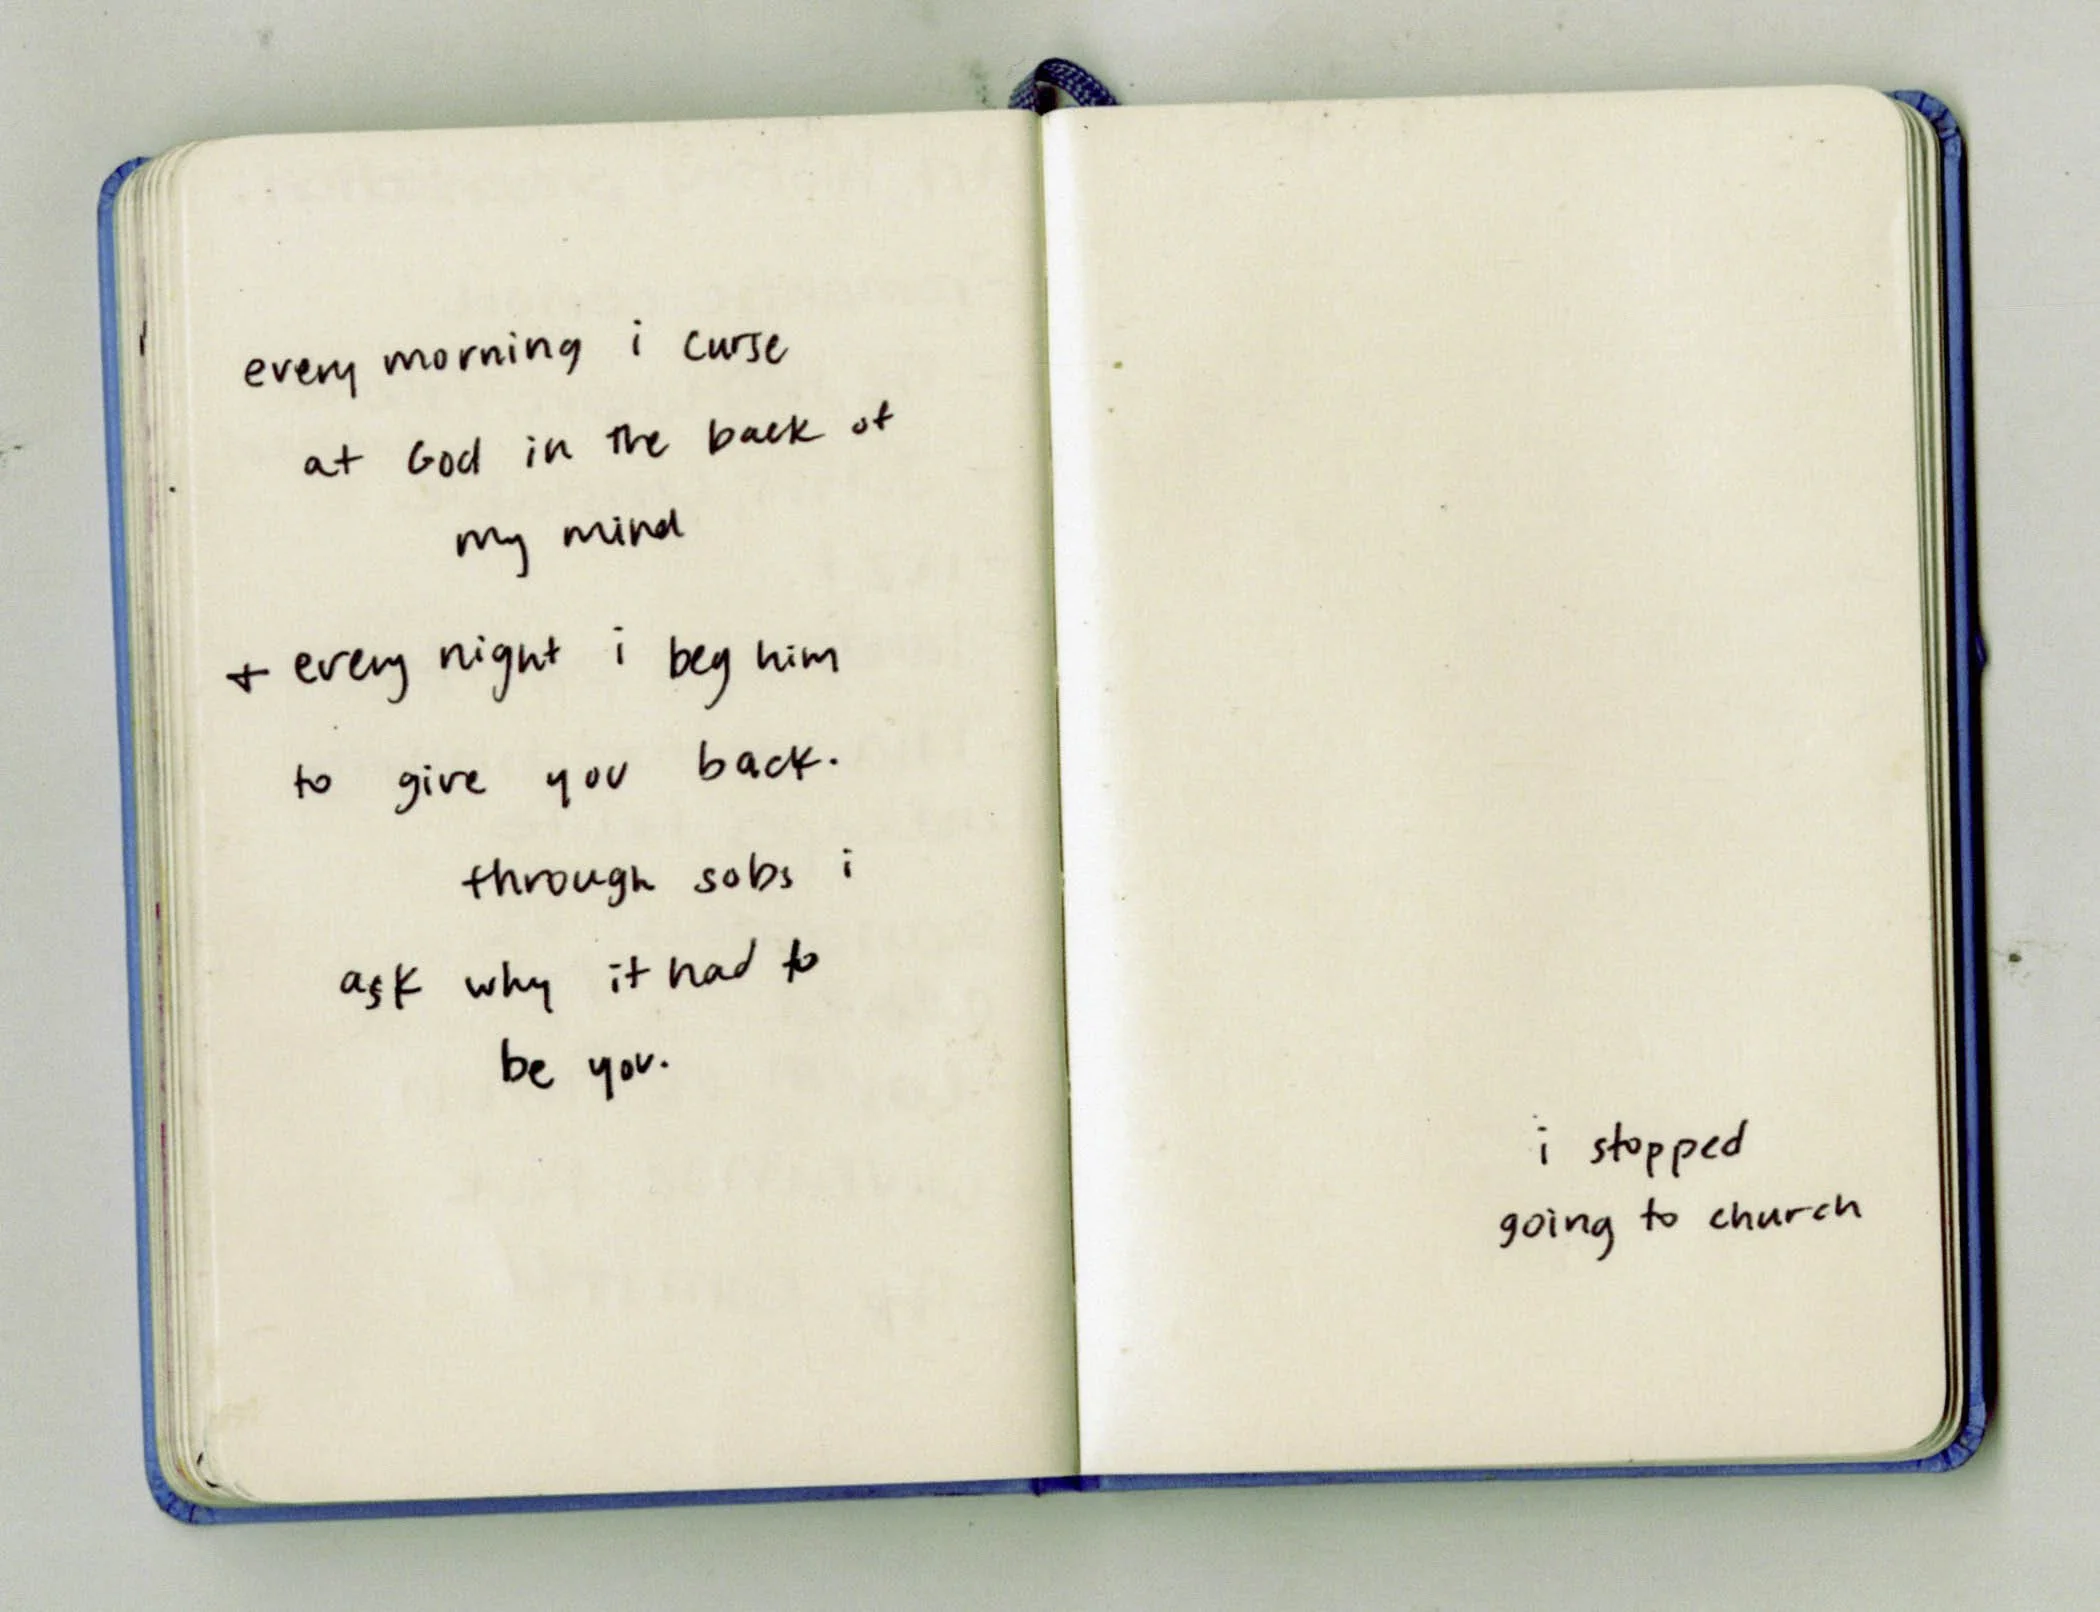 every morning i curse
at God in the back of
my mind
+ every night i beg him
to give you back.
through sobs i
ask why it had to
be you.
i stopped
going to church